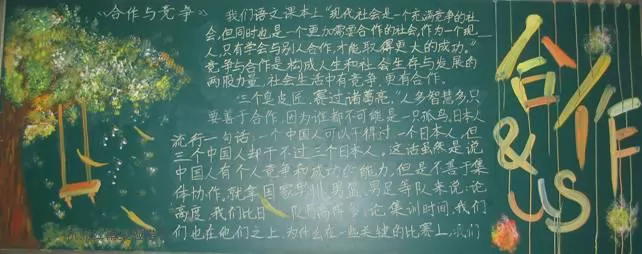 合作与竞争
我们语文课本上“现代社会是一个充满竞争的社
会,但同时也是一个更加需要合作的社会,作为一个现
人,只有学会与别人合作,才能取得更大的成功。”
竞争与合作是构成人生和社会生存与发展的
两股力量,社会生活中有竞争,更有合作。
“三个臭皮匠,赛过诸葛亮。”人多智慧多,只
要善于合作,因为谁都不可能是一只孤鸟,日本人
流行一句话:一个中国人可以干得过一个日本人,但
三个中国人却干不过三个日本人,这话虽然是说
中国人有个人竞争和成功的能力,但是不善于集
体协作,就拿国家 男篮、男足等队来说,论
高度,我们比日 队 论集训时间,我们
们也在他们之上,为什么在一些关键的比赛上,我们
合作
&
US